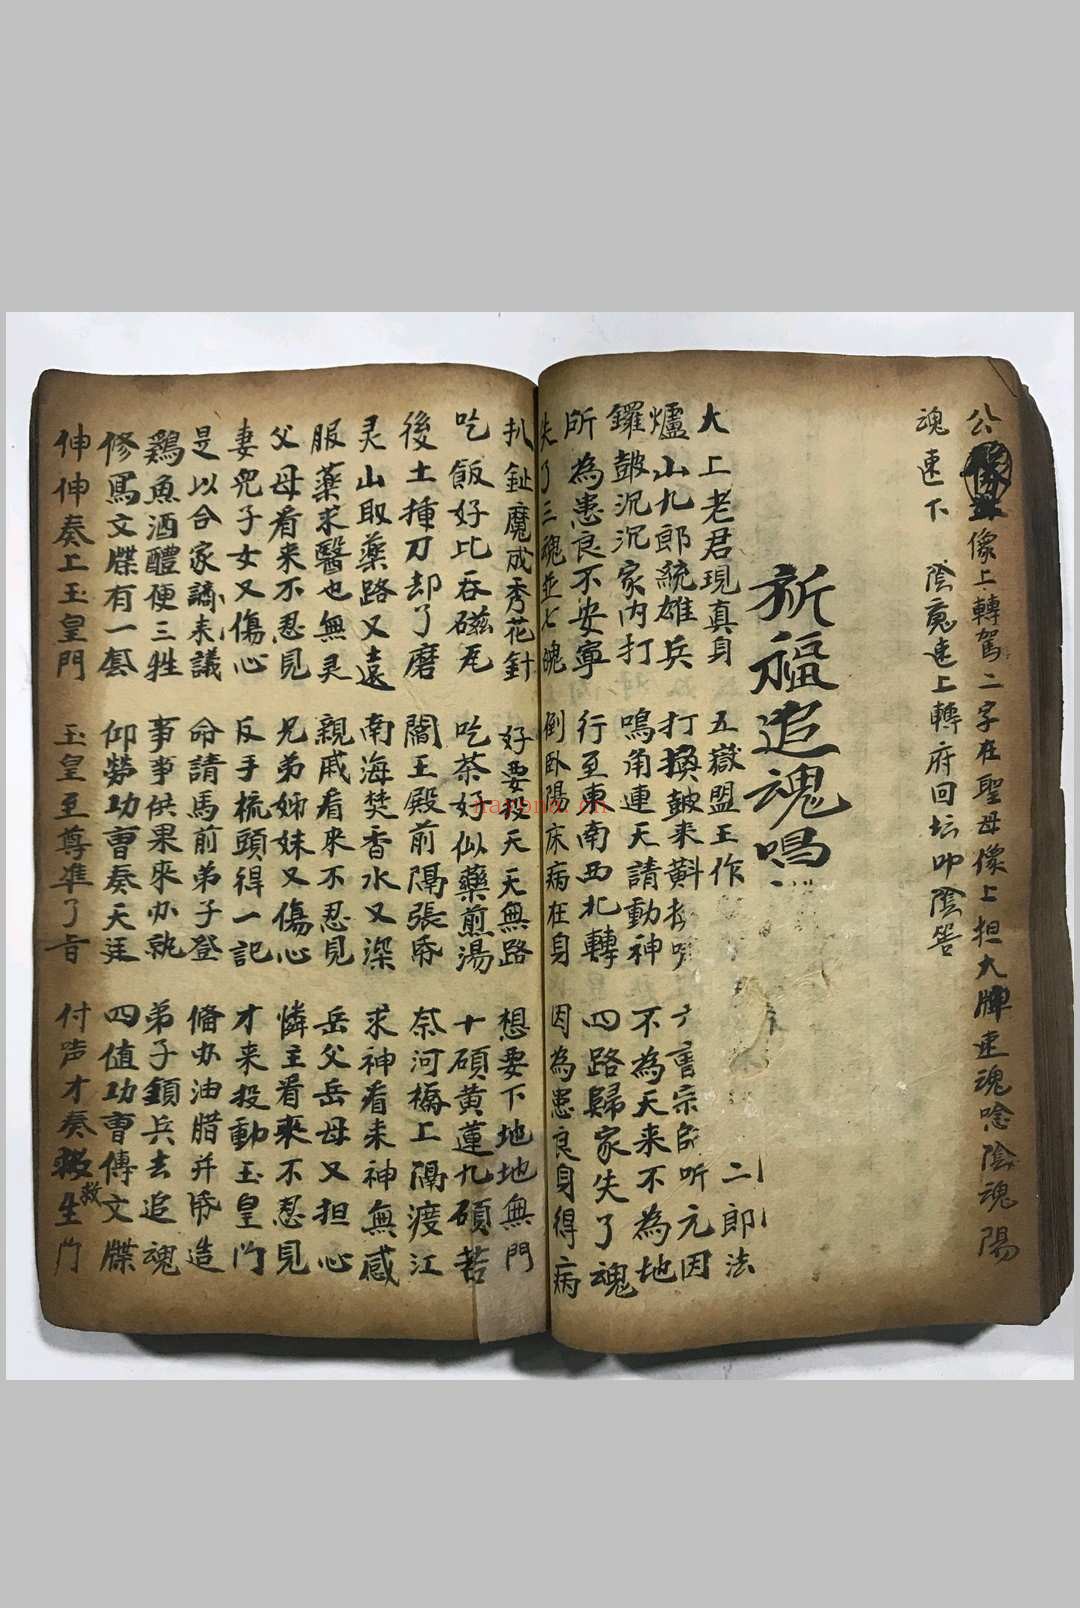 公像上轉駕二字在聖母像上担大牌速魂唸陰魂陽
魂速下 陰魂速上轉府回坛叩陰筶
祈福追魂唱
大上老君現真身 五嶽盟王作 二郎法
爐山九郎統雄兵 打換皷来 宗師听元因
鑼皷沉沉家内打 鳴角連天請動神 不為天来不為地
所為患良不安寧 行至東南西北轉 四路歸家失了魂
失了三魂並七魄 倒卧陽床病在身 因為患良身得病
扒鉦魔成秀花針 好要投天天無路 想要下地地無門
吃飯好比吞磁瓦 吃茶好似藥煎湯 十碩黄蓮九碩苦
後土種刀却了磨 閻王殿前隔張昏 奈河橋上隔渡江
灵山取藥路又遠 南海焚香水又深 求神看来神無感
服藥求醫也無灵 親戚看来不忍見 岳父岳母又担心
父母看来不忍見 兄弟姊妹又傷心 憐主看来不忍見
妻兒子女又傷心 反手梳頭得一記 才来投動玉皇门
是以合家謫来議 命請馬前弟子登 偹办油腊并昏造
鷄魚酒醴便三牲 事事供果來办執 弟子鎖兵去追魂
修寫文牒有一套 仰勞功曹奏天廷 四值功曹傳文牒
伸伸奏上玉皇門 玉皇至尊準了旨 付声才奏救生门